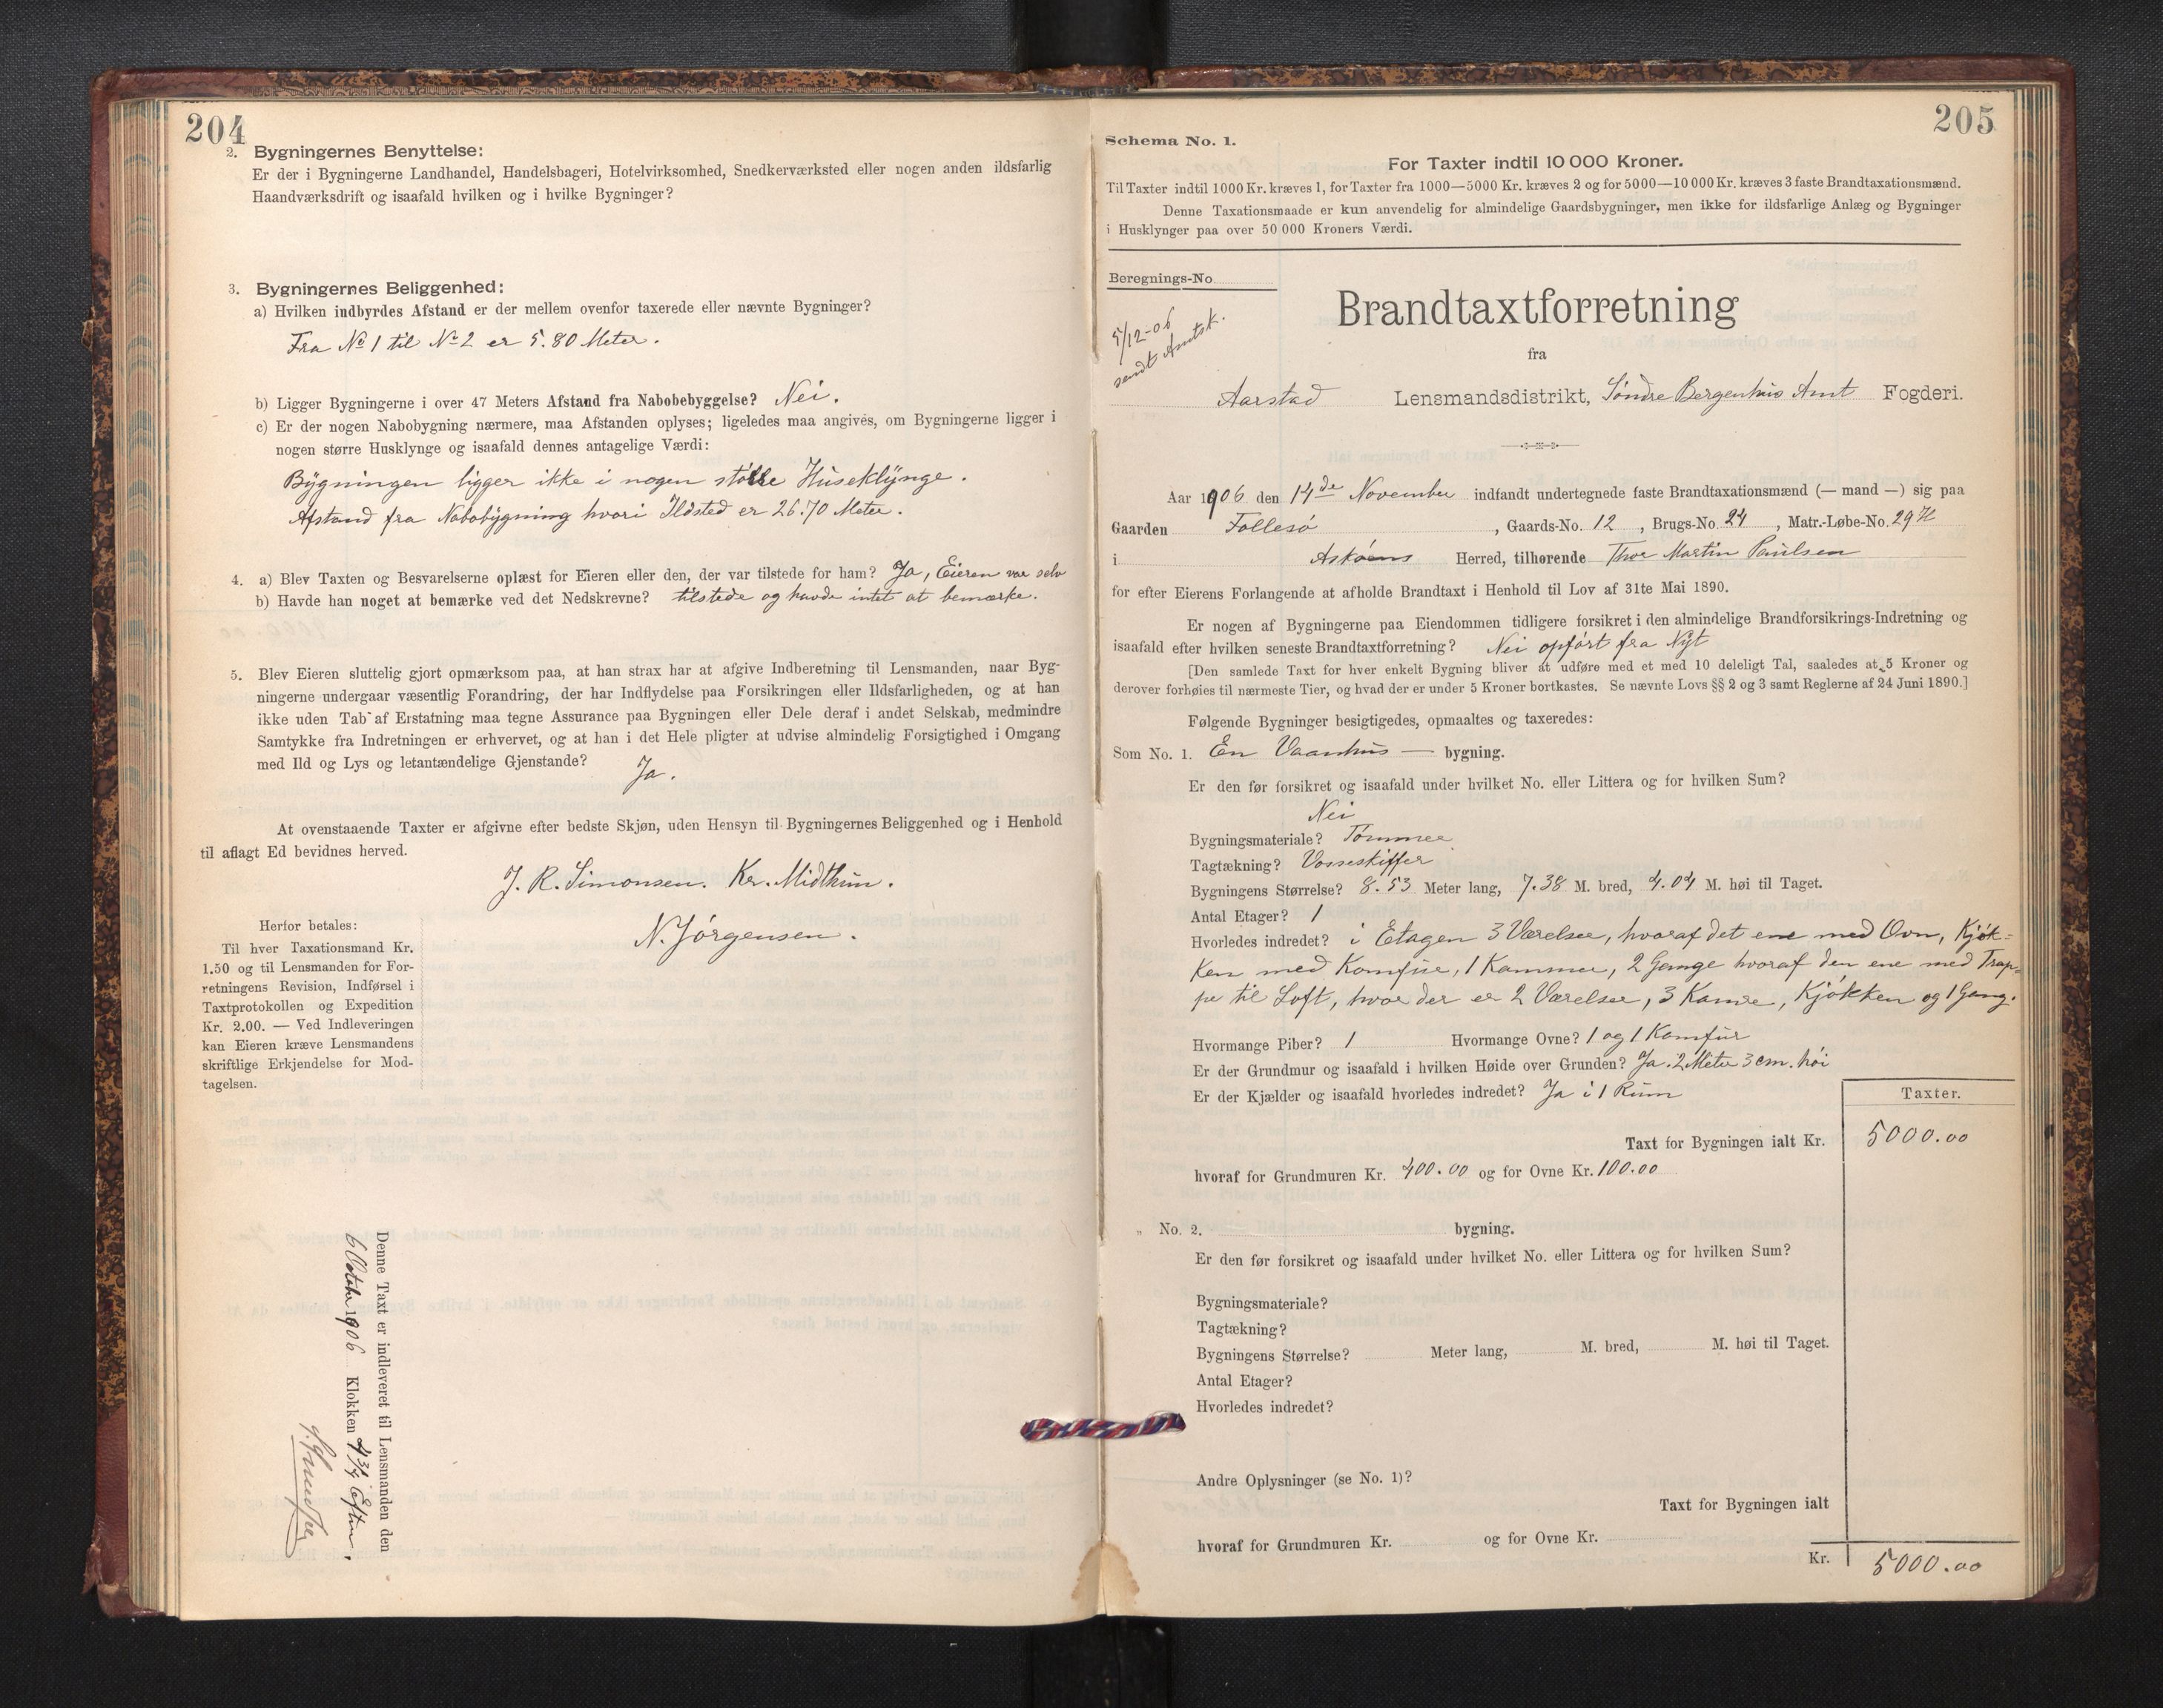 204
2. Bygningernes Benyttelse:
Er der i Bygningerne Landhandel, Handelsbageri, Hotelvirksomhed, Snedkerværksted eller nogen anden ildsfarlig
Haandværksdrift og isaafald hvilken og i hvilke Bygninger?
3. Bygningernes Beliggenhed:
a) Hvilken indbyrdes Afstand er der mellem ovenfor taxerede eller nævnte Bygninger?
Fra No 1 til No 2 er 5.80 Meter.
b) Ligger Bygningerne i over 47 Meters Afstand fra Nabobebyggelse? Nei.
c) Er der nogen Nabobygning nærmere, maa Afstanden oplyses; ligeledes maa angives, om Bygningerne ligger i
nogen større Husklynge og isaafald dennes antagelige Værdi:
Bygningen ligger ikke i nogen større Huseklynge.
Afstand fra Nabobygning hvori Ildsted er 26.70 Meter.
4. a) Blev Taxten og Besvarelserne oplæst for Eieren eller den, der var tilstede for ham? Ja, Eieren var selv
b) Havde han noget at bemærke ved det Nedskrevne? tilstede og havde intet at bemærke.
5. Blev Eieren sluttelig gjort opmærksom paa, at han strax har at afgive Indberetning til Lensmanden, naar Byg-
ningerne undergaar væsentlig Forandring, der har Indflydelse paa Forsikringen eller Ildsfarligheden, og at han
ikke uden Tab af Erstatning maa tegne Assurance paa Bygningen eller Dele deraf i andet Selskab, medmindre
Samtykke fra Indretningen er erhvervet, og at han i det Hele pligter at udvise almindelig Forsigtighed i Omgang
med Ild og Lys og letantændelige Gjenstande? Ja.
At ovenstaaende Taxter er afgivne efter bedste Skjøn, uden Hensyn til Bygningernes Beliggenhed og i Henhold
til aflagt Ed bevidnes herved.
J. R. Simonsen. Kr. Midthun.
N. Jørgensen.
Herfor betales:
Til hver Taxationsmand Kr.
1.50 og til Lensmanden for For-
retningens Revision, Indførsel i
Taxtprotokollen og Expedition
Kr. 2.00. — Ved Indleveringen
kan Eieren kræve Lensmandens
skriftlige Erkjendelse for Mod-
tagelsen.
Denne Taxt er indleveret til Lensmanden den
6 1906 Klokken 4 3/4 Efterm.
205
Schema No. 1.
For Taxter indtil 10 000 Kroner.
Til Taxter indtil 1000 Kr. kræves 1, for Taxter fra 1000—5000 Kr. kræves 2 og for 5000—10 000 Kr. kræves 3 faste Brandtaxationsmænd.
Denne Taxationsmaade er kun anvendelig for almindelige Gaardsbygninger, men ikke for ildsfarlige Anlæg og Bygninger
i Husklynger paa over 50 000 Kroners Værdi.
Beregnings-No
5/12-06
sendt Amtsk.
Brandtaxtforretning
fra
Aarstad Lensmandsdistrikt, Søndre Bergenhus Amt Fogderi.
Aar 1906 den 14de November indfandt undertegnede faste Brandtaxationsmænd (— mand —) sig paa
Gaarden Follesø, Gaards-No. 12, Brugs-No 24, Matr.-Løbe-No. 29 H
i Askøens Herred, tilhørende Thor Martin Paulsen
for efter Eierens Forlangende at afholde Brandtaxt i Henhold til Lov af 31te Mai 1890.
Er nogen af Bygningerne paa Eiendommen tidligere forsikret i den almindelige Brandforsikrings-Indretning og
isaafald efter hvilken seneste Brandtaxtforretning? Nei opført fra Nyt
[Den samlede Taxt for hver enkelt Bygning bliver at udføre med et med 10 deleligt Tal, saaledes at 5 Kroner og
derover forhøies til nærmeste Tier, og hvad der er under 5 Kroner bortkastes. Se nævnte Lovs §§ 2 og 3 samt Reglerne af 24 Juni 1890.]
Følgende Bygninger besigtigedes, opmaaltes og taxeredes:
Som No. 1. En Vaanhus — bygning.
Er den før forsikret og isaafald under hvilket No. eller Littera og for hvilken Sum?
Nei
Bygningsmateriale? Tømmer
Tagtækning? Vosseskiffer
Bygningens Størrelse? 8.53 Meter lang, 7.38 M. bred, 4.04 M. høi til Taget.
Antal Etager? 1
Hvorledes indredet? i Etagen 3 Værelser, hvoraf det ene med Ovn, Kjøk-
ken med Komfur, 1 Kammer, 2 Gange hvoraf den ene med Trap-
pe til Loft, hvor der er 2 Værelser, 3 Kamre, Kjøkken og 1 Gang.
Hvormange Piber? 1 Hvormange Ovne? 1 og 1 Komfur
Er der Grundmur og isaafald i hvilken Høide over Grunden? Ja. 2 Meter 3 cm. høi
Er der Kjælder og isaafald hvorledes indredet? Ja i 1 Rum
Taxter.
Taxt for Bygningen ialt Kr. 5000.00
hvoraf for Grundmuren Kr. 400.00 og for Ovne Kr. 100.00
„ No. 2. bygning.
Er den før forsikret og isaafald under hvilket No. eller Littera og for hvilken Sum?
Bygningsmateriale?
Tagtækning?
Bygningens Størrelse? Meter lang, M. bred, M. høi til Taget.
Antal Etager?
Hvorledes indredet?
Andre Oplysninger (se No. 1)?
Taxt for Bygningen ialt
hvoraf for Grundmuren Kr. og for Ovne Kr.
Kr. 5000.00